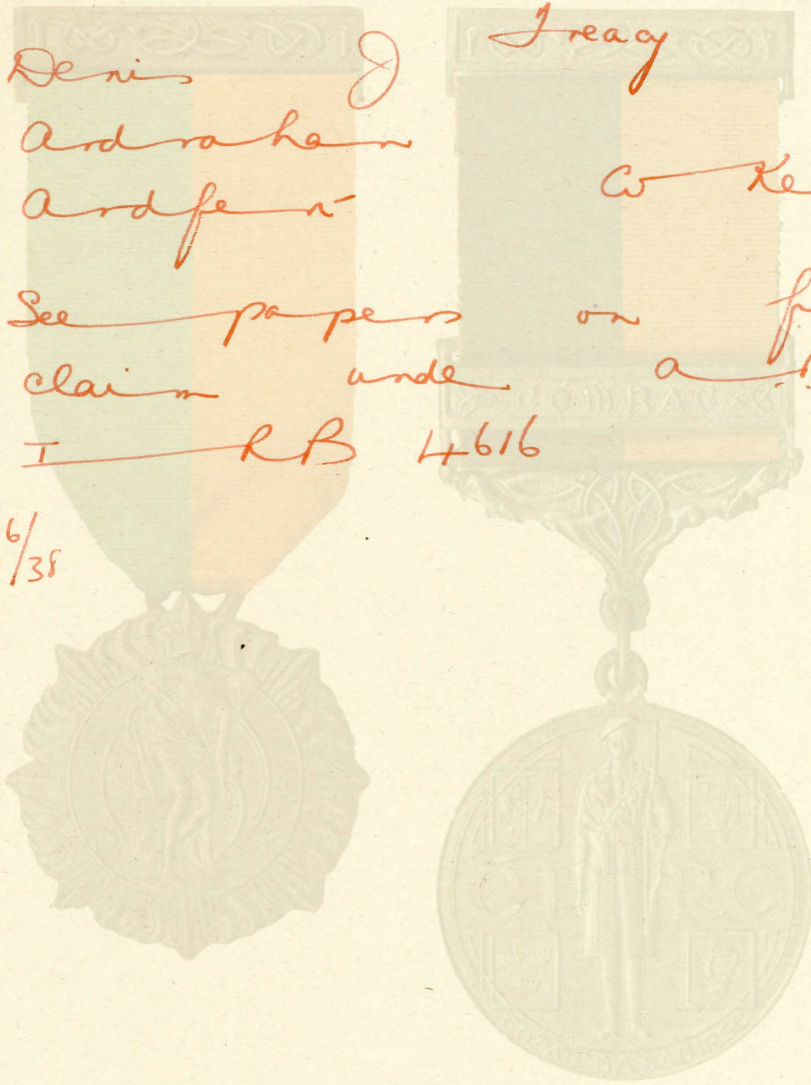 Denis J Treacy
Ardrahan
Ardfert Co Ke
See papers on f
claim under a
I RB 4616
6/38
COMRAC